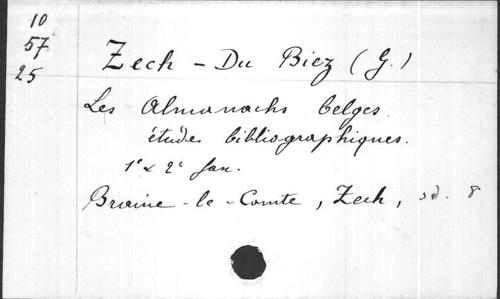 10
57
25
Zech - Du Biez (G.)
Les Almanachs belges
études bibliographiques.
1e & 2e fax.
Braine-le-Comte, Zech, sd. 8